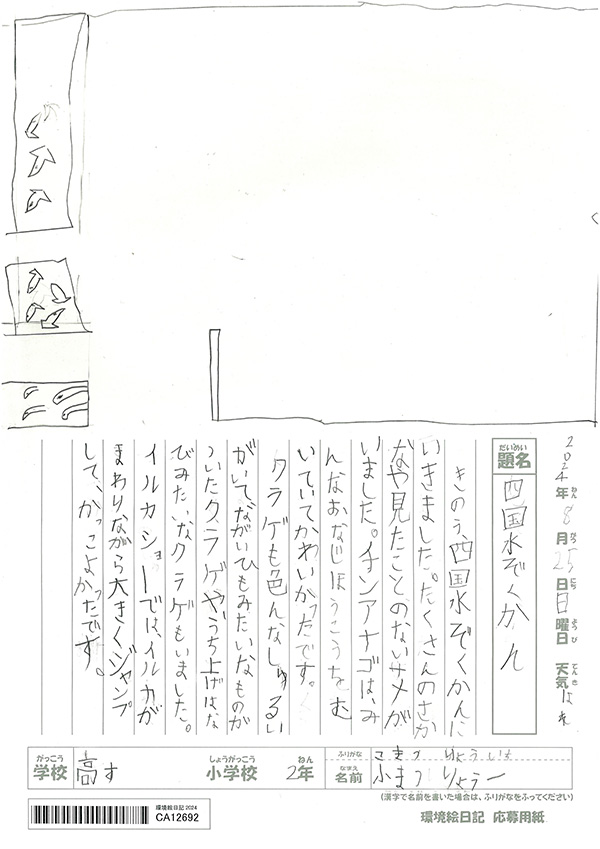 2024年8月25日日曜日 天気 はれ
題名 四国水ぞくかん
きのう、四国水ぞくかんに
いきました。たくさんのさか
なや見たことのないサメが
いました。チンアナゴは、み
んなおなじほうこうをむ
いていてかわいかったです。
クラゲも色んなしゅるい
がいて、ながいひもみたいなものが
ついたクラゲやうち上げはな
びみたいなクラゲもいました。
イルカショーでは、イルカが
まわりながら大きくジャンプ
して、かっこよかったです。
学校 高す 小学校 2年
ふりがな
名前 小まつ りょう一
(漢字で名前を書いた場合は、ふりがなをふってください)
環境絵日記2024
CA12692
環境絵日記 応募用紙